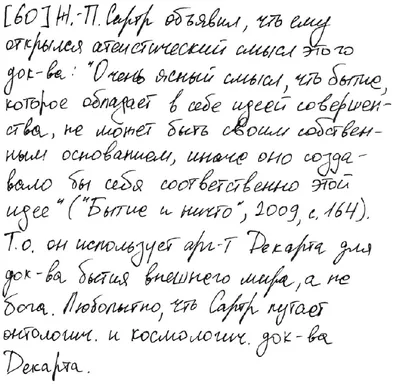 [60] Ж.-П. Сартр объявил, что ему
открылся атеистический смысл этого
док-ва: "Очень ясный смысл, что бытие,
которое обладает в себе идеей совершен-
ства, не может быть своим собствен-
ным основанием, иначе оно созда-
вало бы себя соответственно этой
идее" ("Бытие и ничто", 2009, с. 164).
Т.о. он использует арг-т Декарта для
док-ва бытия внешнего мира, а не
бога. Любопытно, что Сартр путает
онтологич. и космологич. док-ва
Декарта.